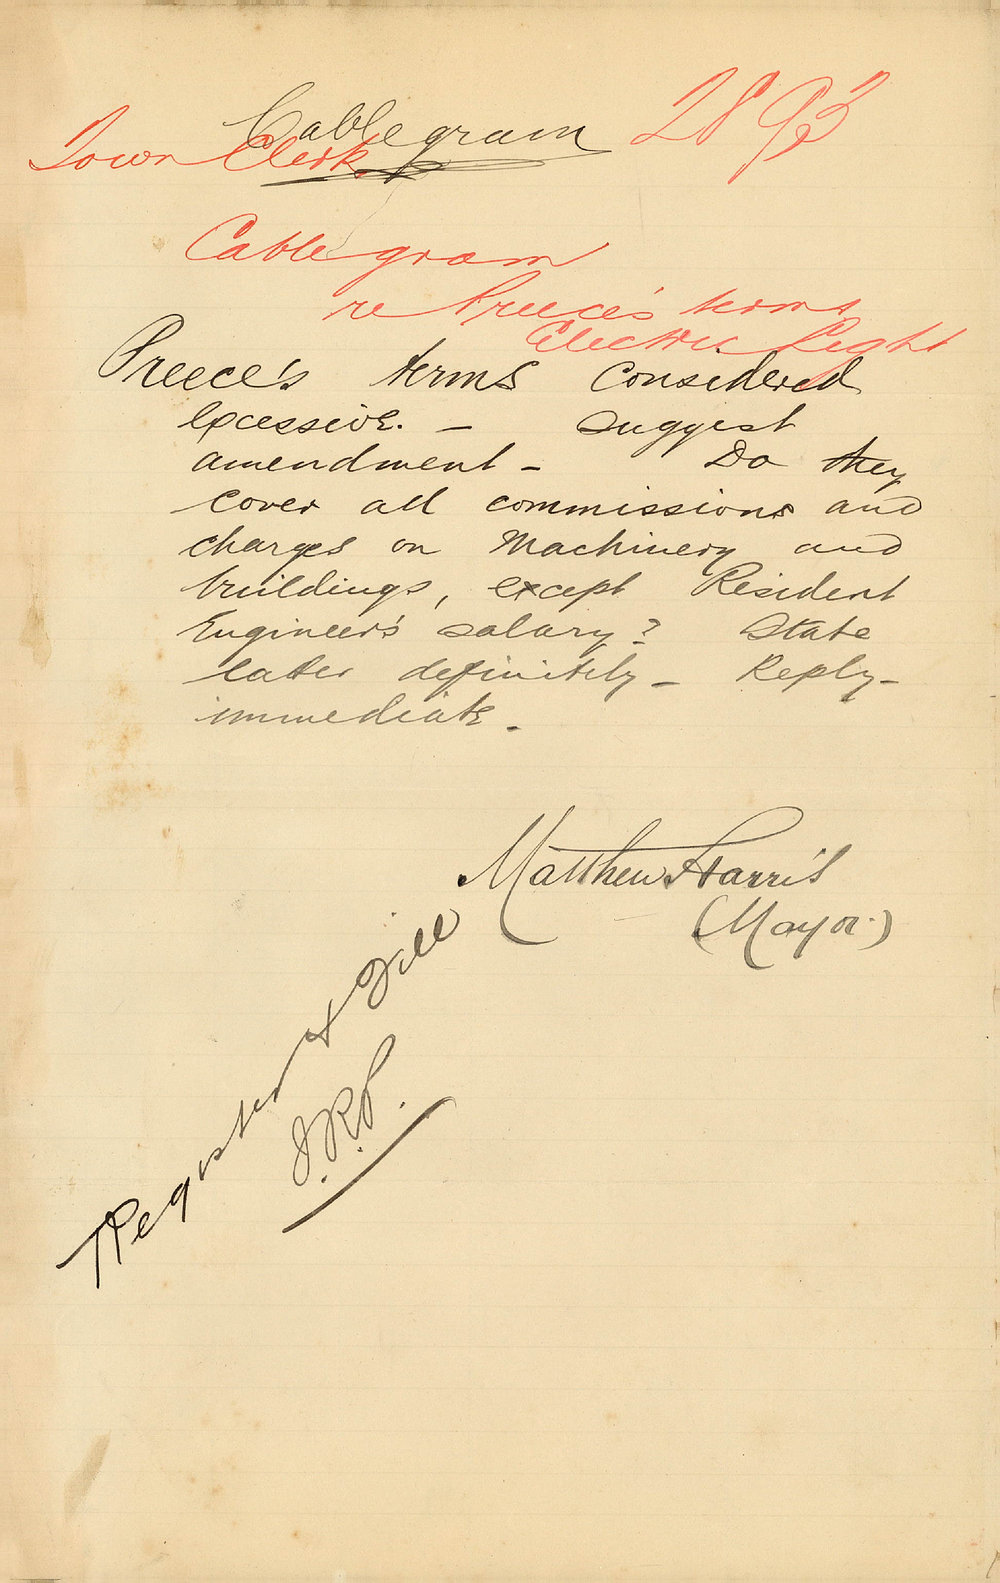 Cablegram
2893
Town Clerk
Cablegram
re Preece's terms
Electric Light
Preece's terms considered
excessive. — Suggest
amendment — Do they
cover all commissions and
charges on Machinery and
buildings, except Resident
Engineer's salary? State
latter definitely — Reply —
immediate —
Matthew Harris
(Mayor)
Register & File